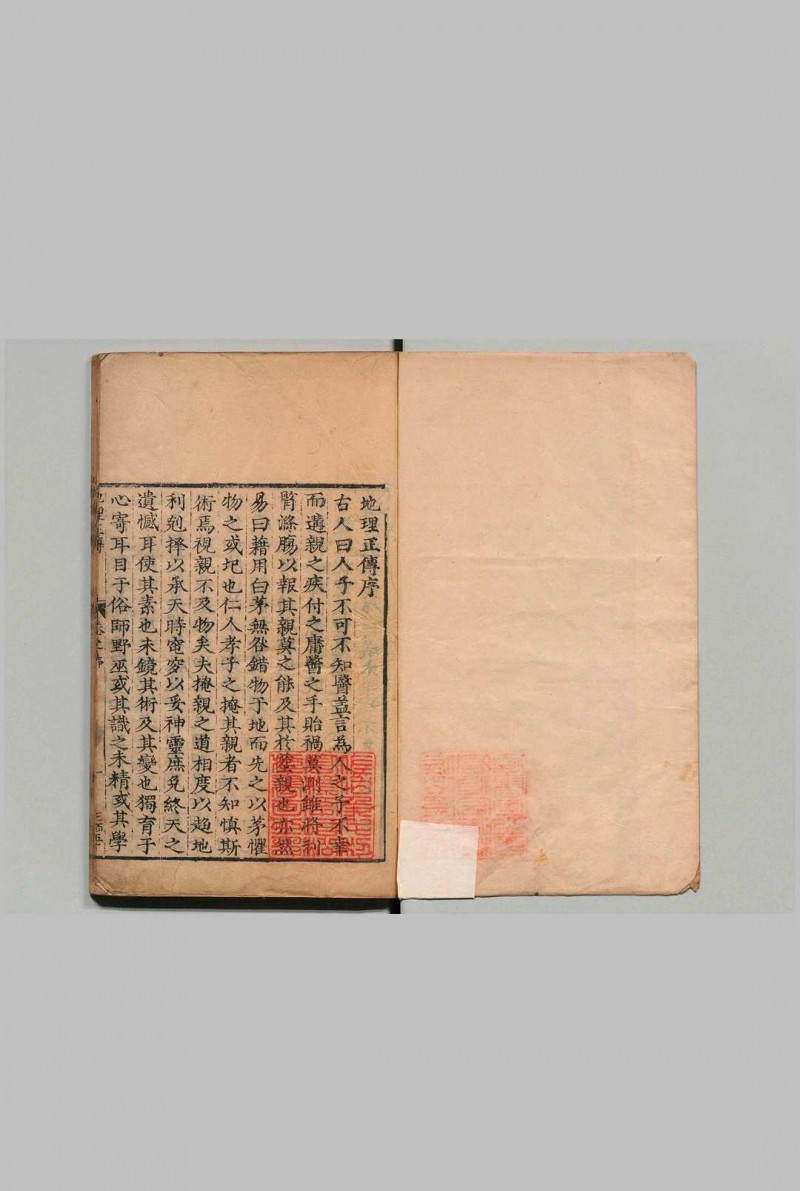 地理正傳序
古人曰人子不可不知醫蓋言為人之子不幸
而遘親之疾付之庸醫之手貽禍莫測雖將刳
腎滌腸以報其親莫之能及其於塟親也亦然
易曰藉用白茅無咎錯物于地而先之以茅懼
物之或圮也仁人孝子之掩其親者不知慎斯
術焉視親不及物矣夫掩親之道相度以趋地
利剋擇以承天時窀穸以妥神靈庶免終天之
遺憾耳使其素也未鏡其術及其變也獨盲于
心寄耳目于俗師野巫或其識之未精或其學
地理正傳
卷之序
一